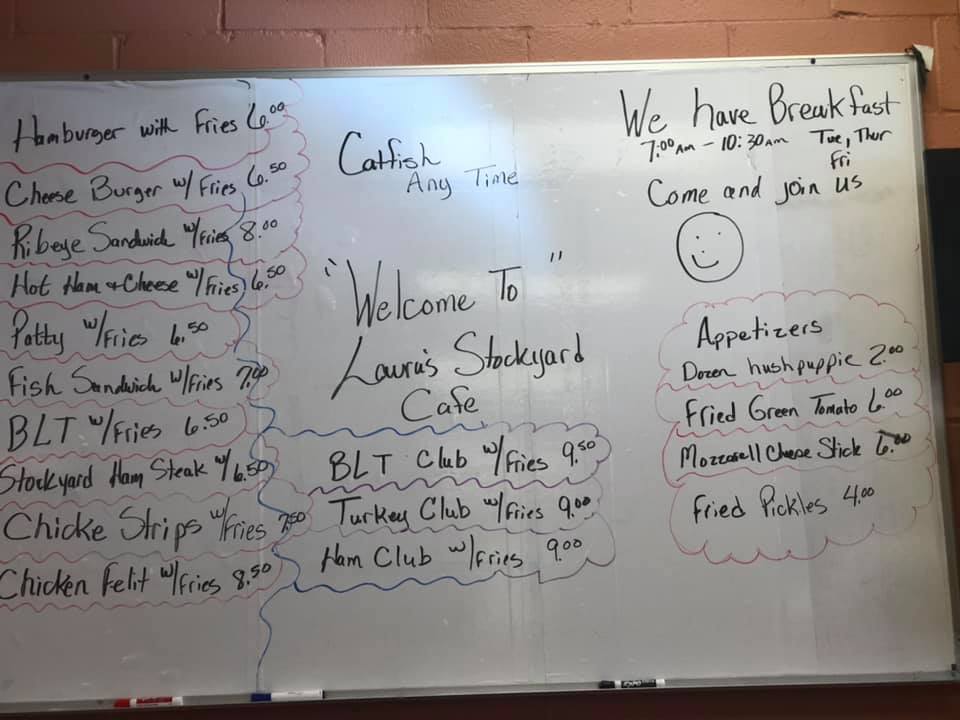 Hamburger with Fries 6.00
Cheese Burger w/ Fries 6.50
Ribeye Sandwich w/Fries 8.00
Hot Ham & Cheese w/Fries 6.50
Patty w/Fries 6.50
Fish Sandwich w/Fries 7.00
BLT w/Fries 6.50
Stockyard Ham Steak w/ 6.50
Chicke Strips w/Fries 7.50
Chicken Felit w/Fries 8.50
Catfish
Any Time
"Welcome To"
Laura's Stockyard
Cafe
BLT Club w/Fries 9.50
Turkey Club w/Fries 9.00
Ham Club w/Fries 9.00
We have Breakfast
7:00 Am - 10:30 am Tue, Thur
Fri
Come and join us
Appetizers
Dozen hushpuppie 2.00
Fried Green Tomato 6.00
Mozzarell Cheese Stick 6.00
Fried Pickles 4.00